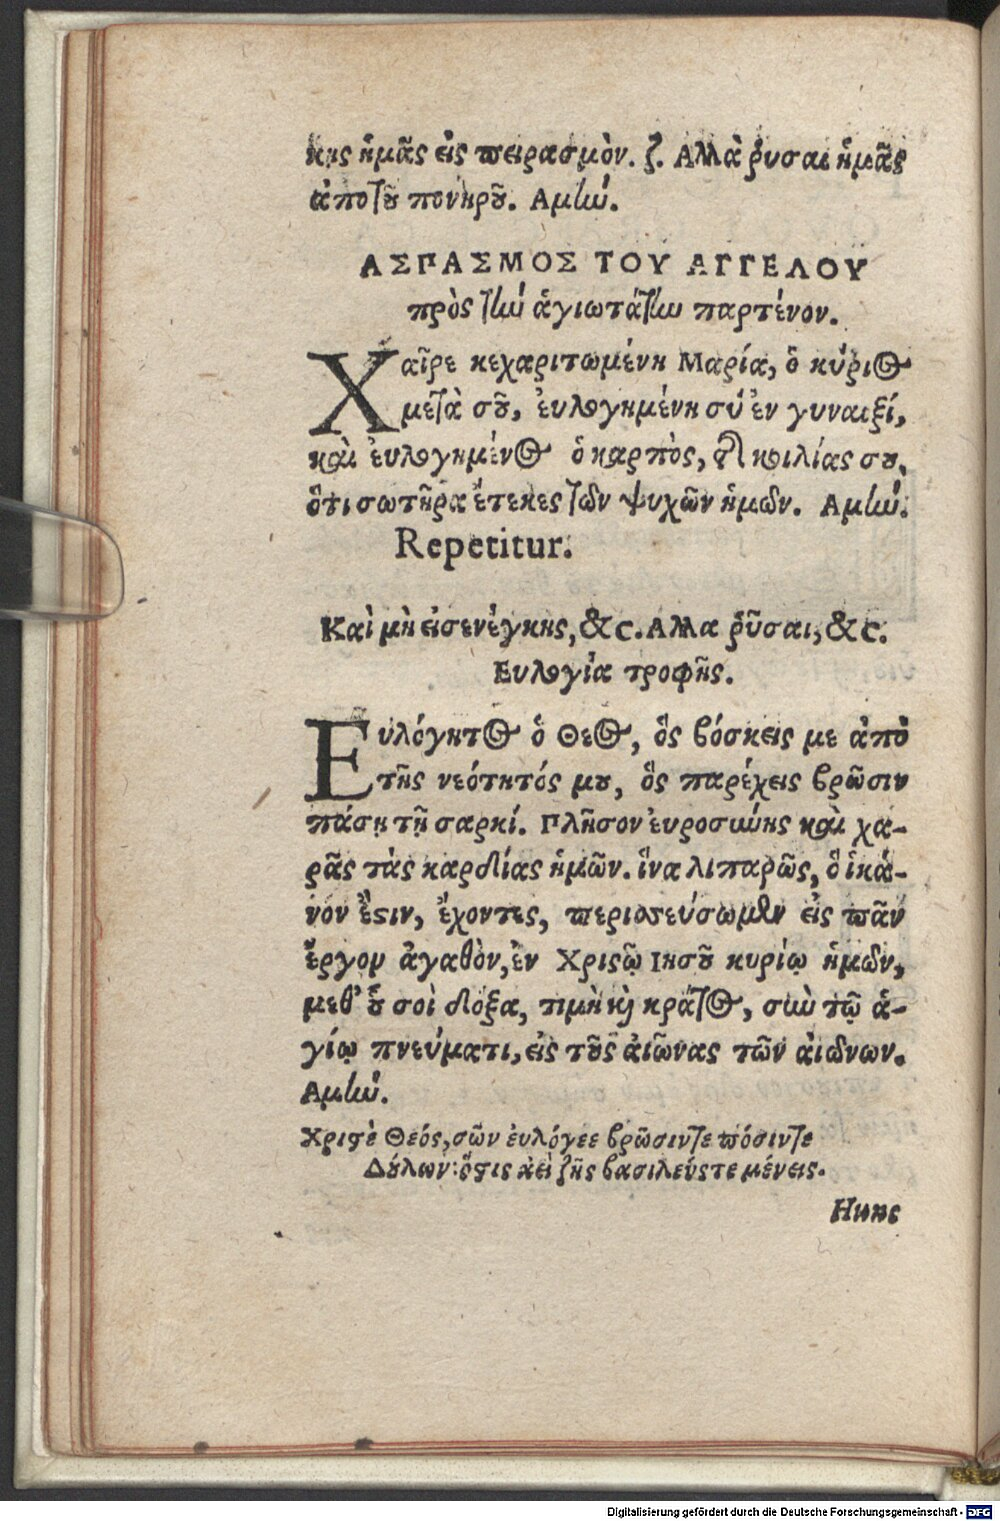 κης ἡμᾶς εἰς πειρασμὸν. ζ. Αλλὰ ῥυσαι ἡμᾶς
ἀπο τοῦ πονηροῦ. Αμίω.
ΑΣΠΑΣΜΟΣ ΤΟΥ ΑΓΓΕΛΟΥ
πρὸς τὴν ἁγιωτάτην παρτένον.
Χαῖρε κεχαριτωμένη Μαρία, ὁ κύριος
μετὰ σοῦ, ἐυλογημένη σύ ἐν γυναιξί,
καὶ ἐυλογημένος ὁ καρπὸς, τῆς κοιλίας σου,
ὅτι σωτῆρα ἔτεκες τῶν ψυχῶν ἡμῶν. Αμήν.
Repetitur.
Καὶ μὴ εἰσενέγκης, &c. Αλλα ῥῦσαι, &c.
Ευλογία τροφῆς.
Ευλόγητος ὁ Θεος, ὃς βόσκεις με ἀπὸ
τῆς νεότητός μου, ὃς παρέχεις βρῶσιν
πάσῃ τῇ σαρκί. Πλῆσον ἐυροσύνης καὶ χα-
ρᾶς τὰς καρδίας ἡμῶν. ἵνα λιπαρῶς, ὃ ἱκά-
νον ἔστιν, ἔχοντες, περισσεύσωμεν εἰς πᾶν
ἔργον ἀγαθὸν, ἐν Χριστῷ Ιησοῦ κυρίῳ ἡμῶν,
μεθ' οὗ σοὶ δόξα, τιμὴ καὶ κράτος, σὺν τῷ ἁ-
γίῳ πνεύματι, εἰς τοῦς ἀιῶνας τῶν ἀιώνων.
Αμήν.
Χριστὲ Θεός, σῶν ἐυλόγεε βρῶσιν τε πόσιν τε
Δούλων: ὅστις ἀεὶ ζῆς βασιλεύς τε μένεις.
Digitalisierung gefördert durch die Deutsche Forschungsgemeinschaft - DFG